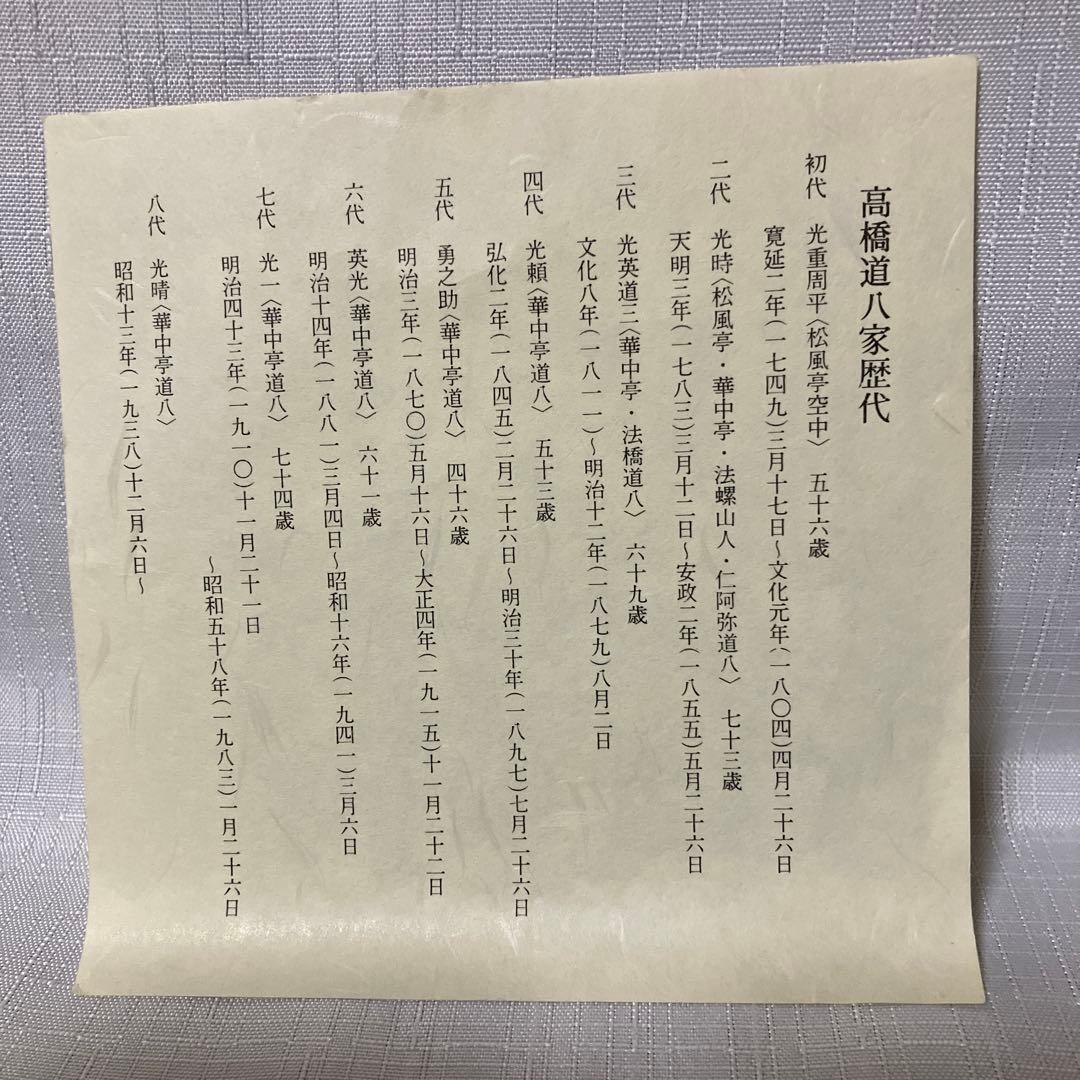 高橋道八家歴代
初代 光重周平〈松風亭空中〉 五十六歳
寛延二年(一七四九)三月十七日～文化元年(一八〇四)四月二十六日
二代 光時〈松風亭・華中亭・法螺山人・仁阿弥道八〉 七十三歳
天明三年(一七八三)三月十二日～安政二年(一八五五)五月二十六日
三代 光英道三〈華中亭・法橋道八〉 六十九歳
文化八年(一八一一)～明治十二年(一八七九)八月二日
四代 光頼〈華中亭道八〉 五十三歳
弘化二年(一八四五)二月二十六日～明治三十年(一八九七)七月二十六日
五代 勇之助〈華中亭道八〉 四十六歳
明治三年(一八七〇)五月十六日～大正四年(一九一五)十一月二十二日
六代 英光〈華中亭道八〉 六十一歳
明治十四年(一八八一)三月四日～昭和十六年(一九四一)三月六日
七代 光一〈華中亭道八〉 七十四歳
明治四十三年(一九一〇)十一月二十一日
～昭和五十八年(一九八三)一月二十六日
八代 光晴〈華中亭道八〉
昭和十三年(一九三八)十二月六日～